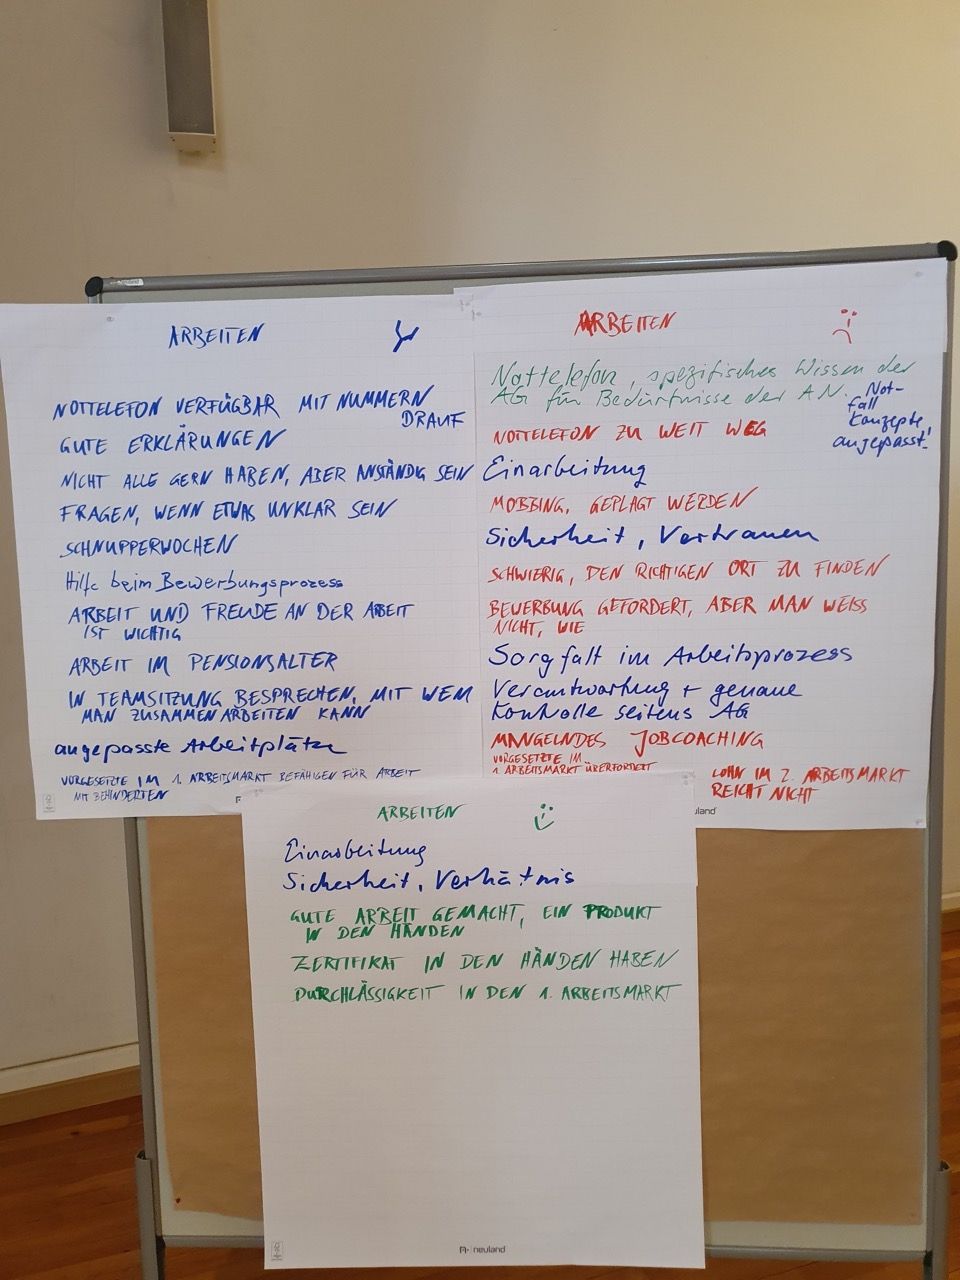 ARBEITEN
NOTTELEFON VERFÜGBAR MIT NUMMERN
DRAUF
GUTE ERKLÄRUNGEN
NICHT ALLE GERN HABEN, ABER ANSTÄNDIG SEIN
FRAGEN, WENN ETWAS UNKLAR SEIN
SCHNUPPERWOCHEN
Hilfe beim Bewerbungsprozess
ARBEIT UND FREUDE AN DER ARBEIT
IST WICHTIG
ARBEIT IM PENSIONSALTER
IN TEAMSITZUNG BESPRECHEN, MIT WEM
MAN ZUSAMMENARBEITEN KANN
angepasste Arbeitplätze
VORGESETZTE IM 1. ARBEITSMARKT BEFÄHIGEN FÜR ARBEIT
MIT BEHINDERTEN
ARBEITEN
Nottelefon, spezifisches Wissen der
AG für Bedürfnisse der AN.
Not-
fall
Konzepte
angepasst!
NOTTELEFON ZU WEIT WEG
Einarbeitung
MOBBING, GEPLAGT WERDEN
Sicherheit, Vertrauen
SCHWIERIG, DEN RICHTIGEN ORT ZU FINDEN
BEWERBUNG GEFORDERT, ABER MAN WEISS
NICHT, WIE
Sorgfalt im Arbeitsprozess
Verantwortung + genaue
Kontrolle seitens AG
MANGELNDES JOBCOACHING
VORGESETZTE IM
1. ARBEITSMARKT ÜBERFORDERT
LOHN IM 2. ARBEITSMARKT
REICHT NICHT
neuland
ARBEITEN
Einarbeitung
Sicherheit, Verhältnis
GUTE ARBEIT GEMACHT, EIN PRODUKT
IN DEN HÄNDEN
ZERTIFIKAT IN DEN HÄNDEN HABEN
DURCHLÄSSIGKEIT IN DEN 1. ARBEITSMARKT
neuland